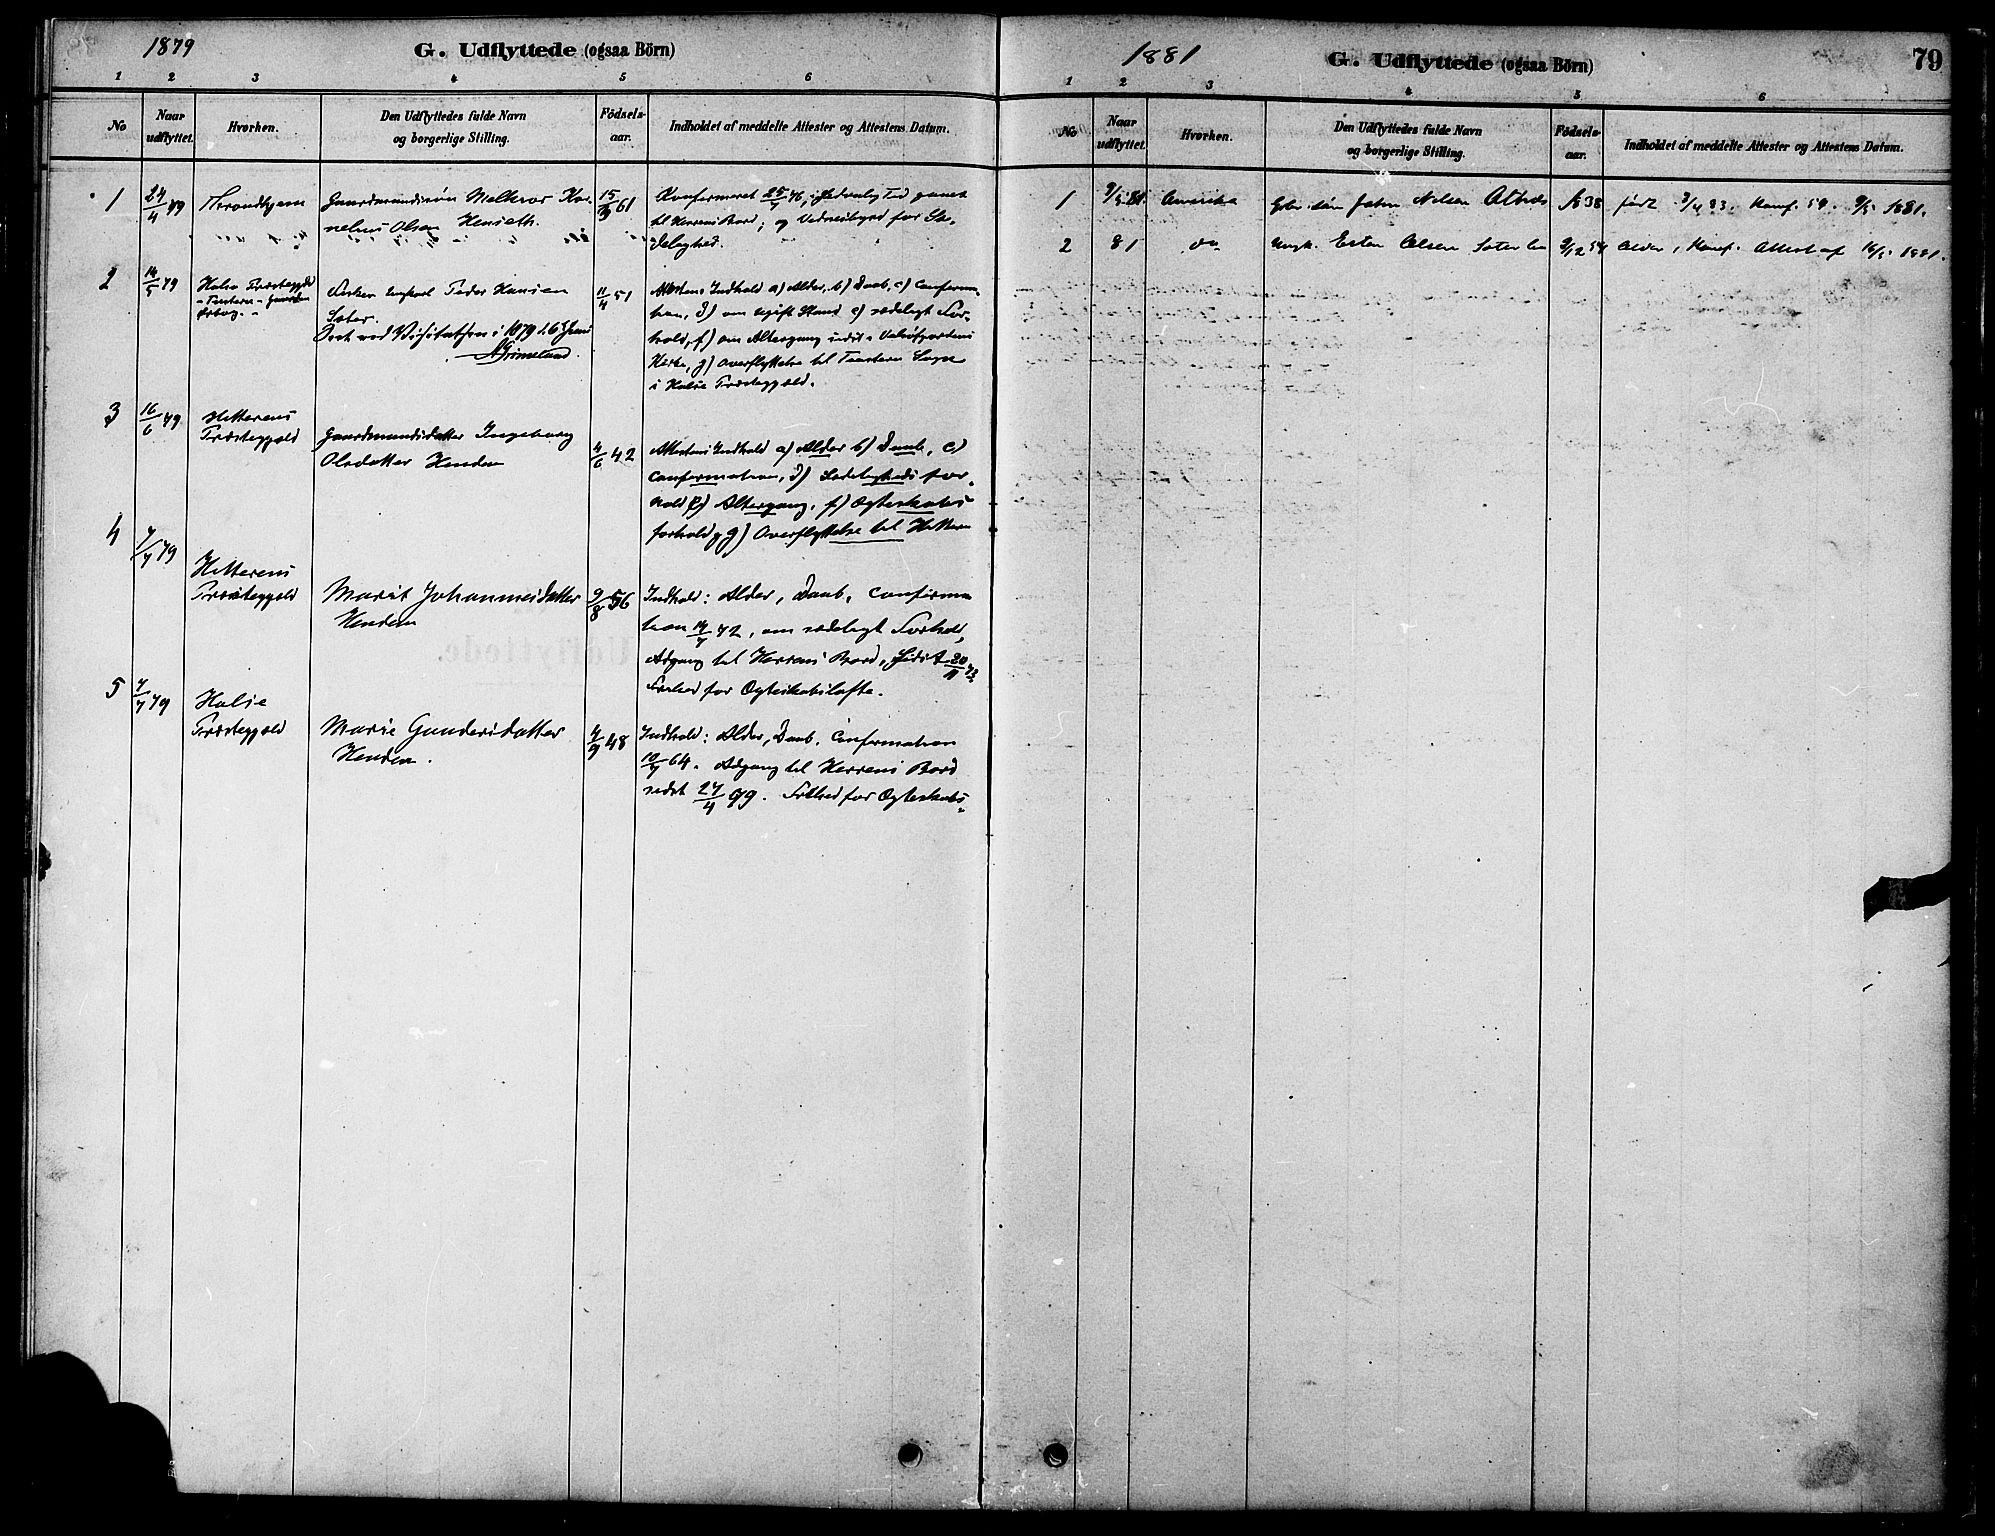 1879
G. Udflyttede (ogsaa Börn)
1 2 3 4 5 6
No
Naar udflyttet.
Hvorhen.
Den Udflyttedes fulde Navn og borgerlige Stilling.
Födsels-aar.
Indholdet af meddelte Attester og Attestens Datum.
1
24/4 79
Throndhjem
Gaardmandssøn Melkior Kor-
nelius Olsen Henseth
15/9 61
Konfirmeret 25/7 76, sædvanlig Tid gaaet
til Herrens Bord, og Vidnesbyrd for Sæ-
delighed.
2
14/5 79
Halse Præstegjeld
Fisker Ungkarl Peder Hansen
Sæter.
Seet ved Visitatsen i 1879
Grimelund.
11/4 51
Attestens Indhold a) Alder, b) Daab, c) Confirma-
tion, d) om ugift Stand e) sædeligt For-
hold, f) om Altergang sidst i Valsøfjordens
Kirke, g) Overflyttelse til Tustern Sogn
i Halse Præstegjæld.
3
16/6 79
Hitterens
Præstegjeld
Gaardmandsdatter Ingeborg
Olsdatter Henden
4/6 42
Attestens Indhold a) Alder b) Daab, c)
Confirmation, d) Sædeligheds for-
hold e) Altergang, f) Ægteskabs
forhold, g) Overflyttelse til Hittern
4
7/7 79
Hitterens
Præstegjeld
Marit Johannesdatter
Henden
9/8 56
Indhold: Alder, Daab, Confirma
tion 14/7 72, om sædeligt Forhold,
Adgang til Herrens Bord, sidst 30/11 73.
Frihed for Ægteskabsløfte.
5
7/7 79
Halse
Præstegjeld
Marie Gundersdatter
Henden.
4/9 48
Indhold: Alder, Daab, Confirmation
10/7 64. Adgang til Herrens Bord
sidst 27/4 79. Frihed for Ægteskabs-
1881
G. Udflyttede (ogsaa Börn)
79
1 2 3 4 5 6
No
Naar udflyttet.
Hvorhen.
Den Udflyttedes fulde Navn og borgerlige Stilling.
Födsels-aar.
Indholdet af meddelte Attester og Attestens Datum.
1
9/5 81
Amerika
John Nilsen
38
født Konf. 54. 9/5 1881.
2
81
do
Ungk. Esten Olsen Sæter
9/12 54
Alder, Konf. Attest af 16/5 1881.